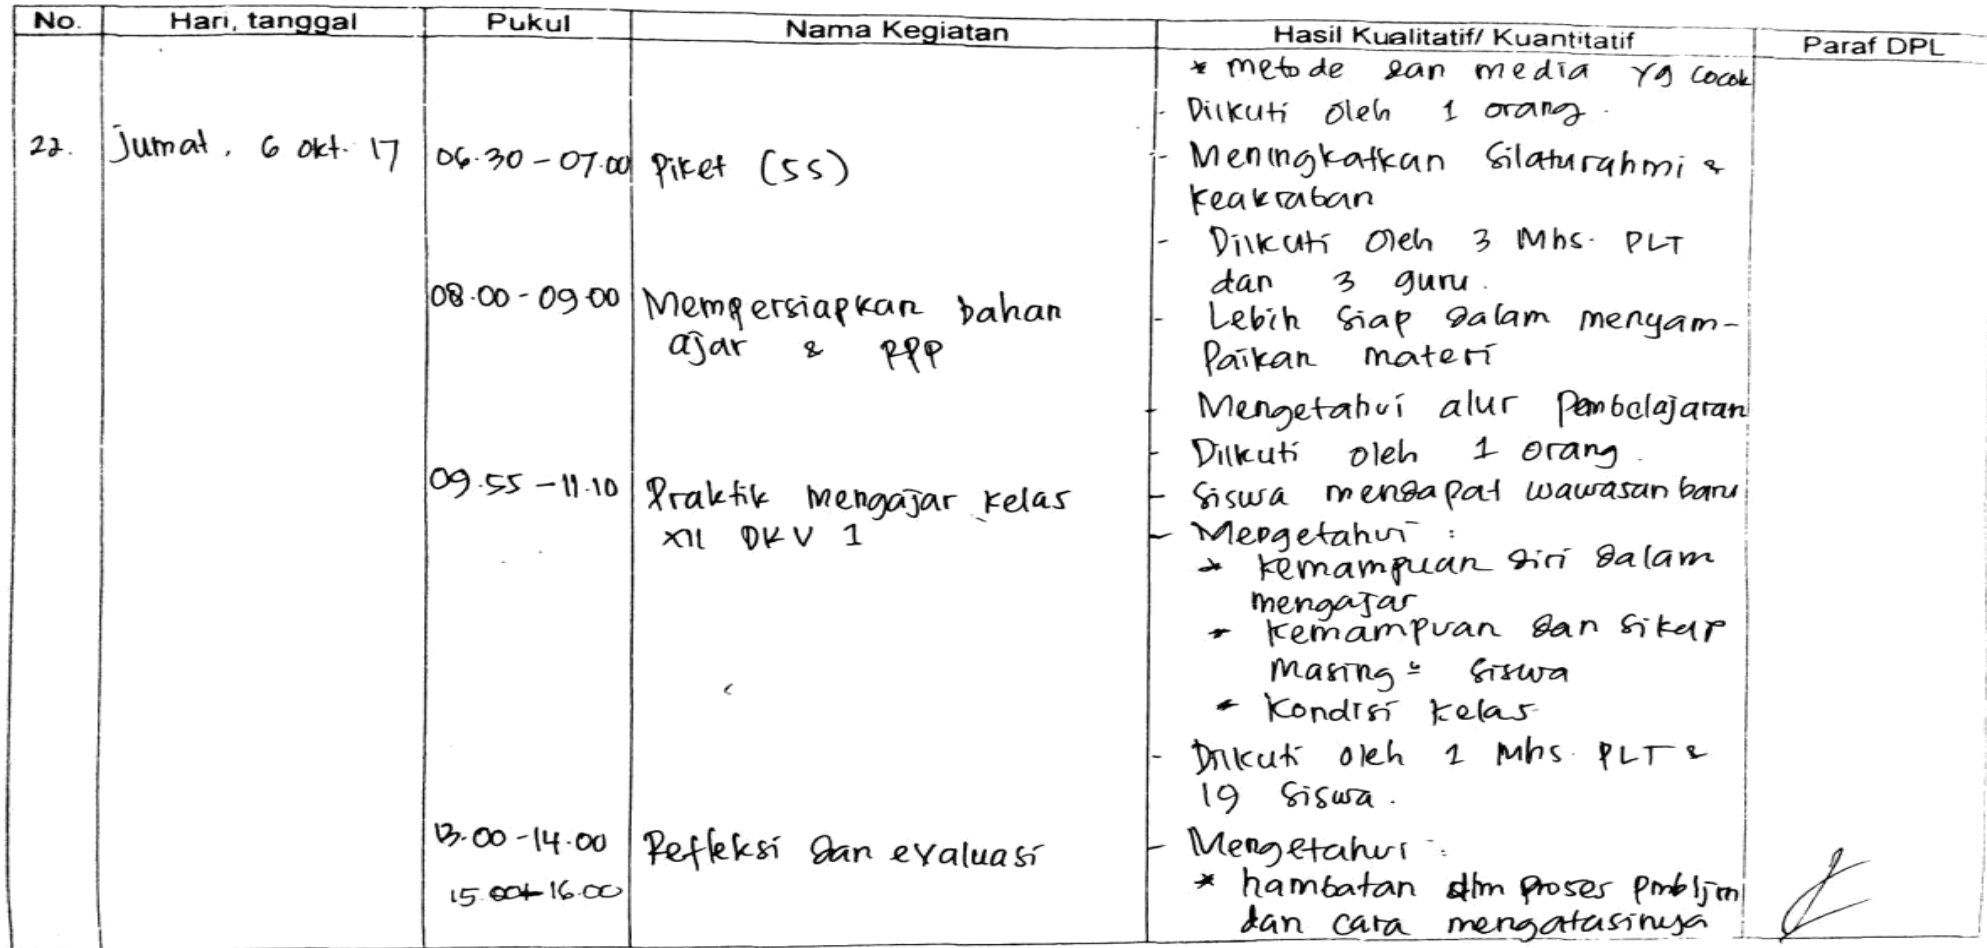 No. Hari, tanggal Pukul Nama Kegiatan Hasil Kualitatif/ Kuantitatif Paraf DPL
* metode dan media yg cocok
- Diikuti oleh 1 orang.
22. Jumat, 6 Okt. 17 06.30 - 07.00 Piket (5S) - Meningkatkan Silaturahmi &
keakraban
- Diikuti oleh 3 Mhs. PLT
dan 3 guru.
08.00 - 09.00 Mempersiapkan bahan - Lebih siap dalam menyam-
ajar & RPP paikan materi
- Mengetahui alur Pembelajaran
- Diikuti oleh 1 orang.
09.55 - 11.10 Praktik mengajar kelas - Siswa mendapat wawasan baru
XII DKV 1 - Mengetahui :
* kemampuan diri dalam
mengajar
* kemampuan dan sikap
masing = siswa
* kondisi kelas
- Diikuti oleh 1 Mhs. PLT &
19 siswa.
13.00 - 14.00 Refleksi dan evaluasi - Mengetahui :
15.00 - 16.00 * hambatan dlm proses pmbljrn
dan cara mengatasinya